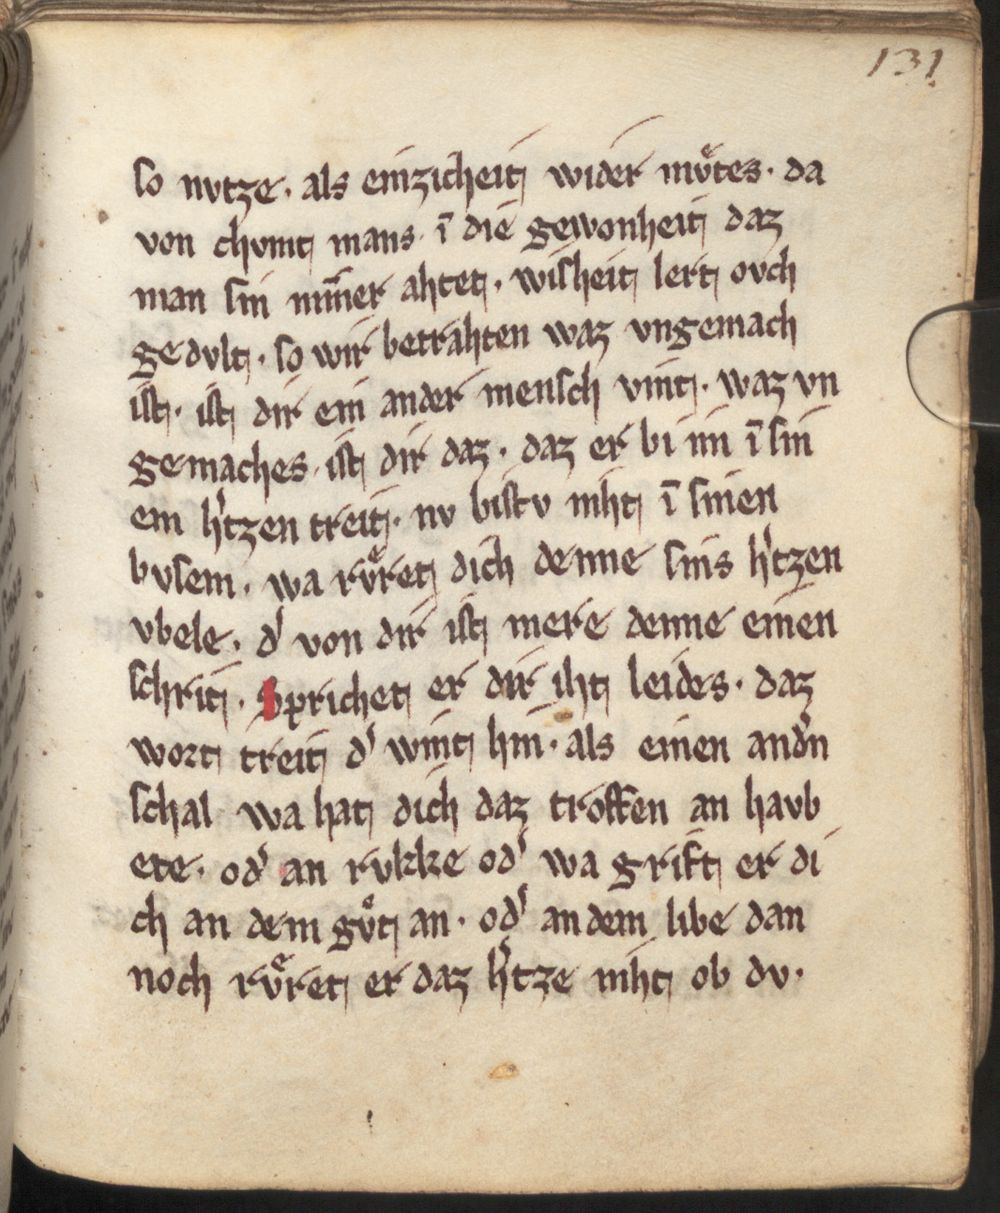 131
so nvtze · als einzicheit wider mvͦtes · da
von chvmt mans · ī die gewonheit daz
man sin nim̄er ahtet · wisheit lert ovch
gedvlt · so wir betrahten waz vngemach
ist · ist dir ein ander mensch vint · waz vn
gemaches · ist dir daz · daz er bi im ī sin
em h'tzen treit · nv bistv niht ī sinen
bvsem · wa rvͤret dich denne sins h'tzen
vbele · d' von dir ist mere denne einen
schrit · Sprichet er dir iht leides · daz
wort treit d' wint hin · als einen and'n
schal wa hat dich daz troffen an havb
ete · od' an rvkke od' wa grift er di
ch an dem gvͦt an · od' an dem libe dan
noch rvͤret er daz h'tze niht ob dv ·